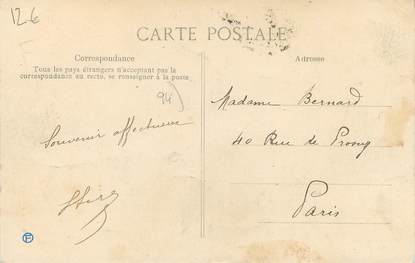 12 €
CARTE POSTALE
Correspondance
Tous les pays étrangers n'acceptant pas la
correspondance au recto, se renseigner à la poste
94
Souvenir affectueux
Adresse
Madame Bernard
40 Rue de Prony
Paris